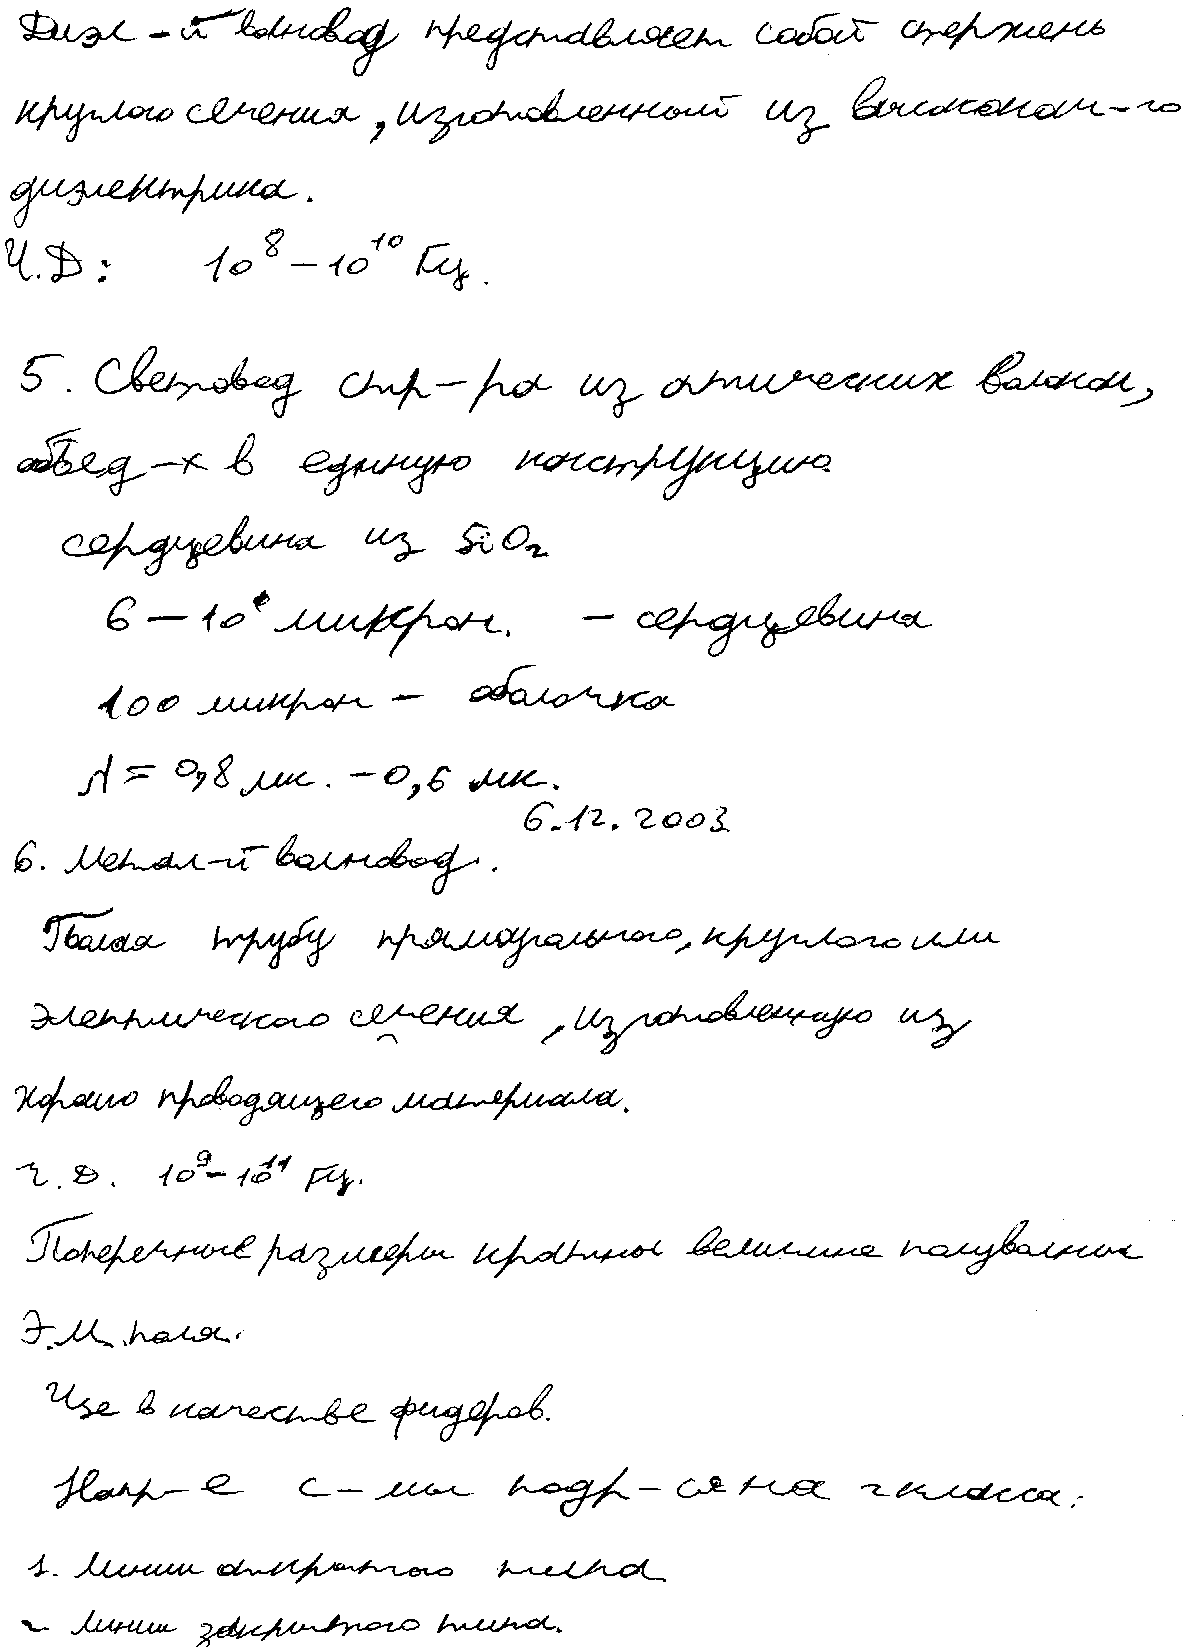 Диэл-й волновод представляет собой стержень
круглого сечения, изготовленный из высококач-го
диэлектрика.
Ч.Д: 10^8 – 10^10 Гц.
5. Световод стр-ра из оптических волокон,
объед-х в единую конструкцию
сердцевина из SiO2
6 – 10 микрон. – сердцевина
100 микрон – оболочка
λ = 0,8 мк. – 0,6 мк.
6.12.2003
6. Метал-й волновод.
Полая трубу прямоугольного, круглого или
элептического сечения, изготовленную из
хорошо проводящего материала.
Ч.Д. 10^9 – 10^11 Гц.
Поперечные размеры кратны величине полуволны
Э.М. поля.
Исе в качестве фидеров.
Напр-е с-мы подр-ся на 2 класса:
1. Линии открытого типа
2 Линии закрытого типа.